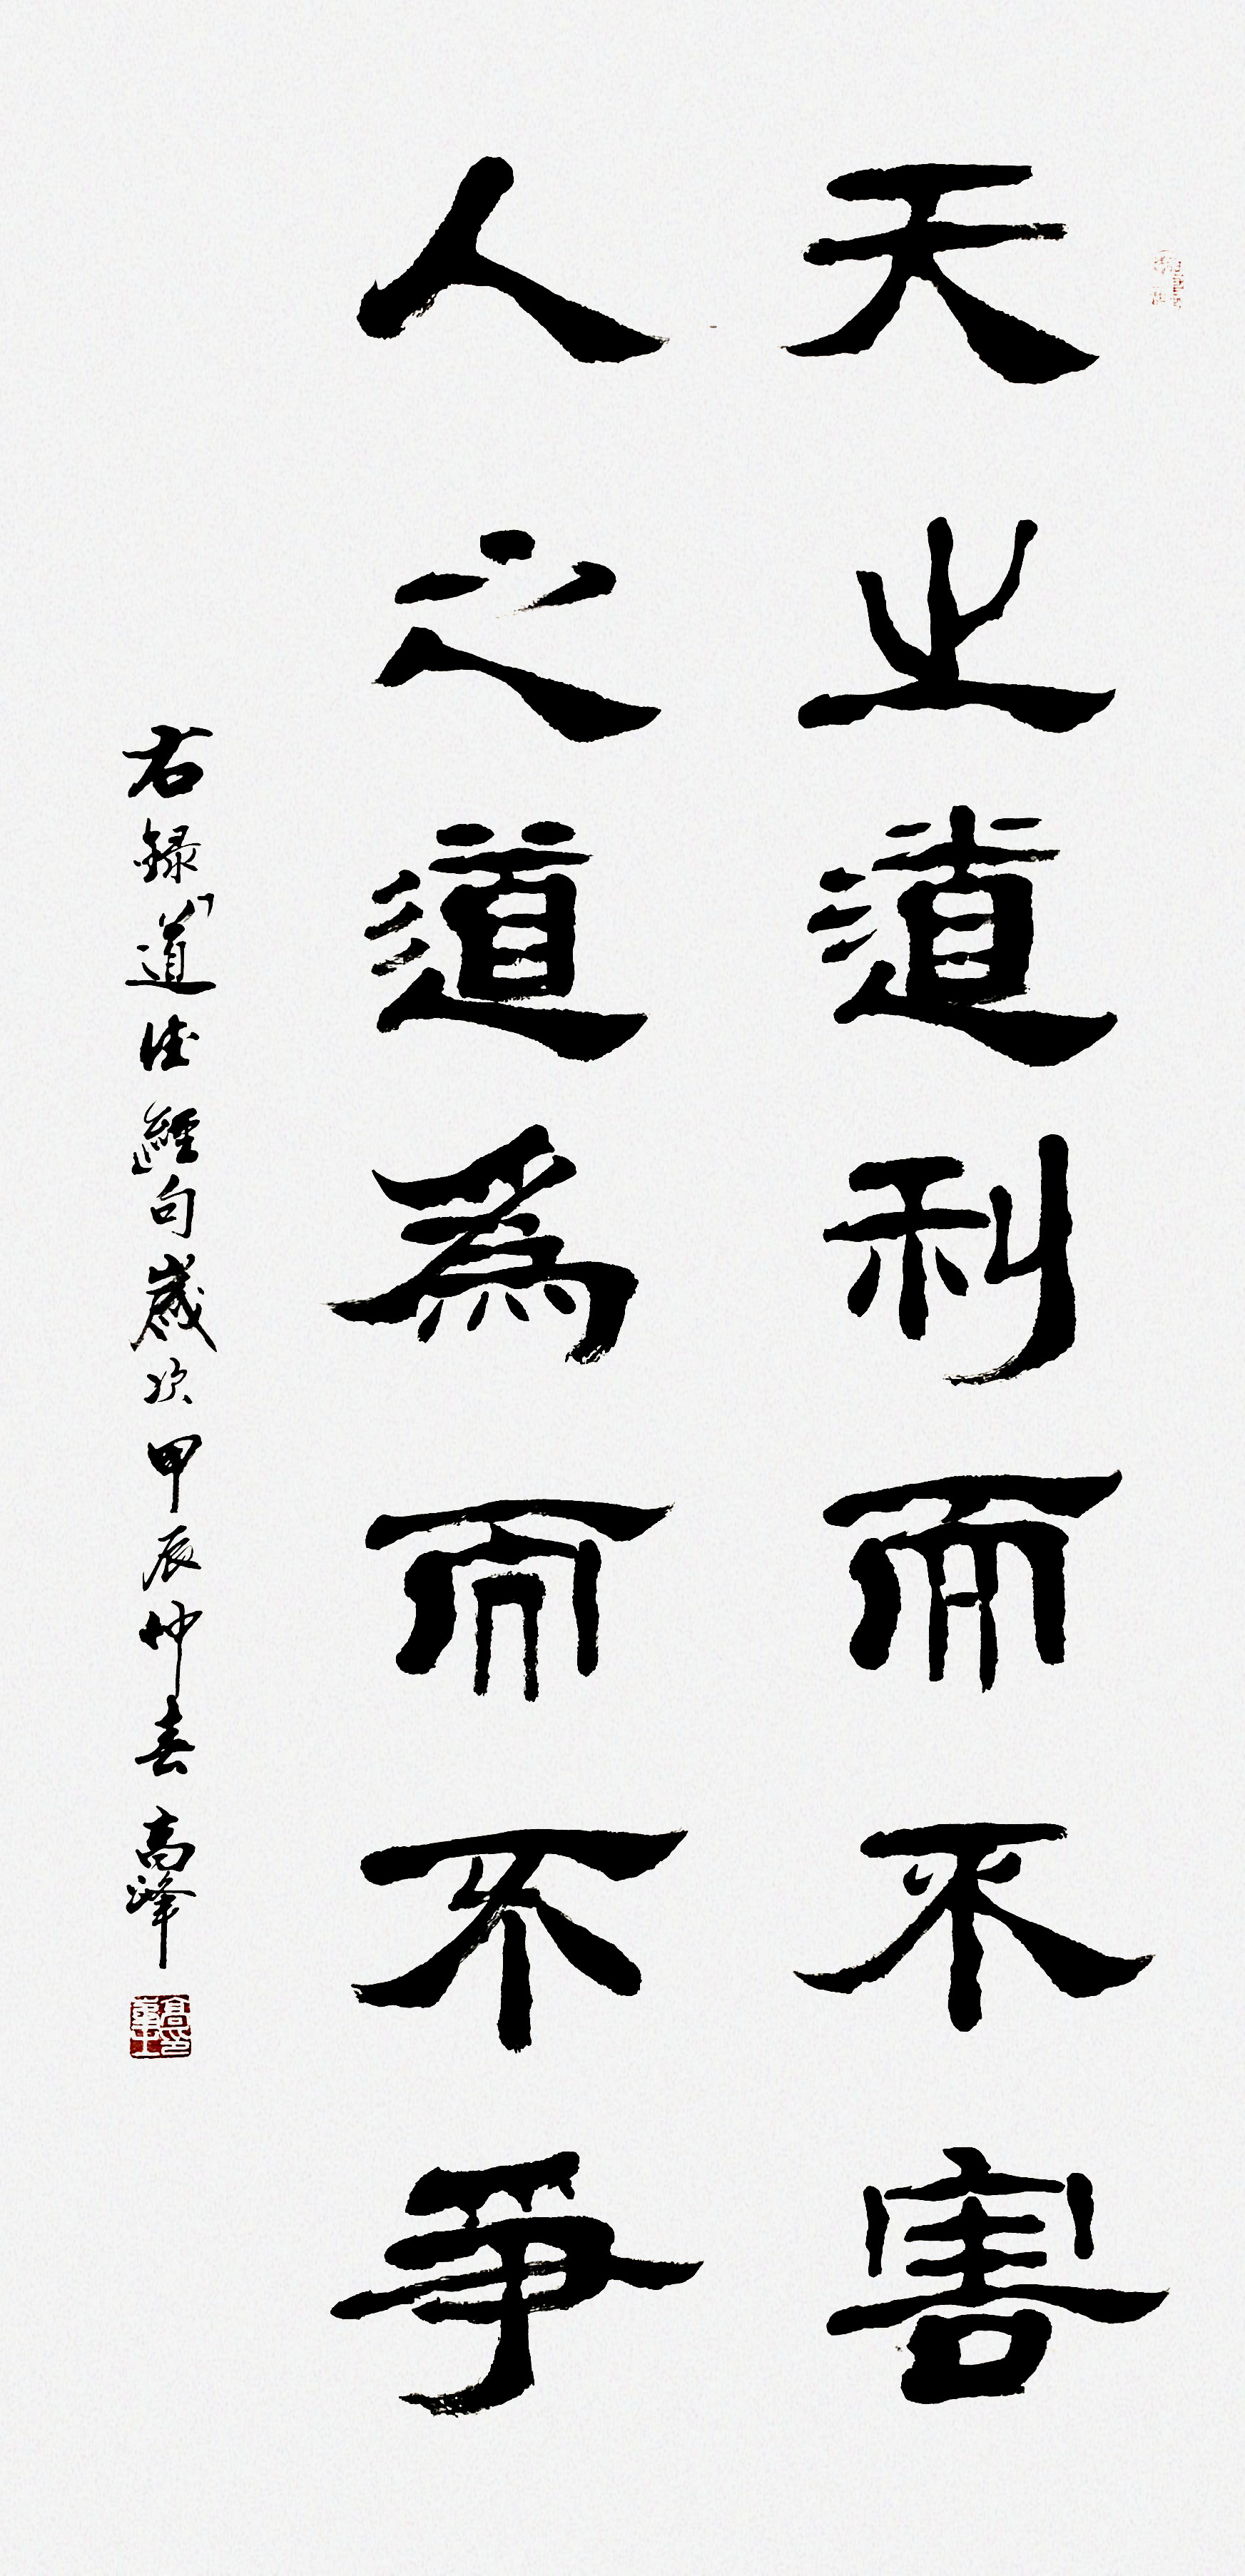 天之道利而不害
人之道為而不爭
右錄「道德經」句歲次甲辰仲春高峰